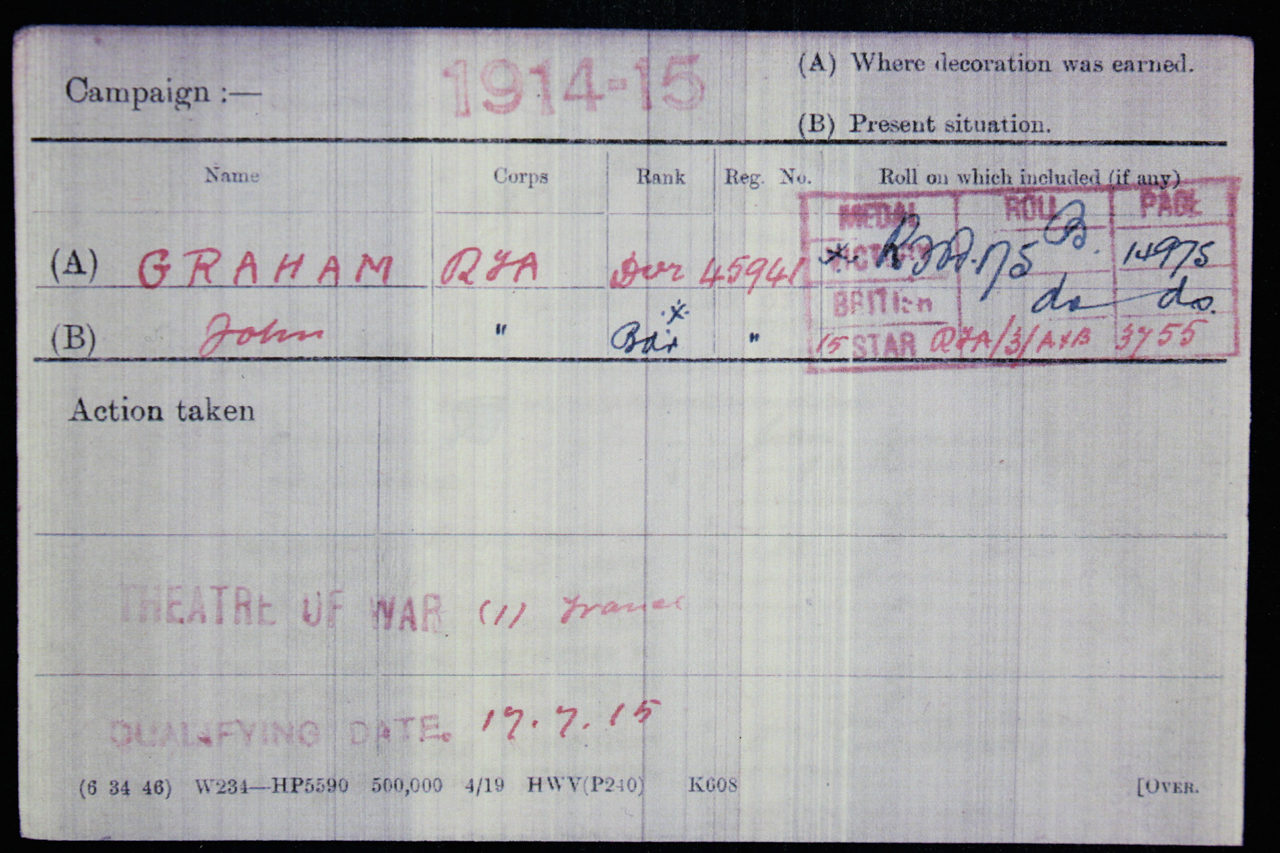 Campaign :— 1914-15 (A) Where decoration was earned.
(B) Present situation.
Name Corps Rank Reg. No. Roll on which included (if any)
MEDAL ROLL PAGE
(A) GRAHAM RFA Dvr 45941 * VICTORY B. 14975
BRITISH do do.
(B) John " Bdr * " 15 STAR RFA/3/A&B 3755
Action taken
THEATRE OF WAR (1) France
QUALIFYING DATE. 17.7.15
(6 34 46) W234—HP5590 500,000 4/19 HWV(P240) K608 [OVER.